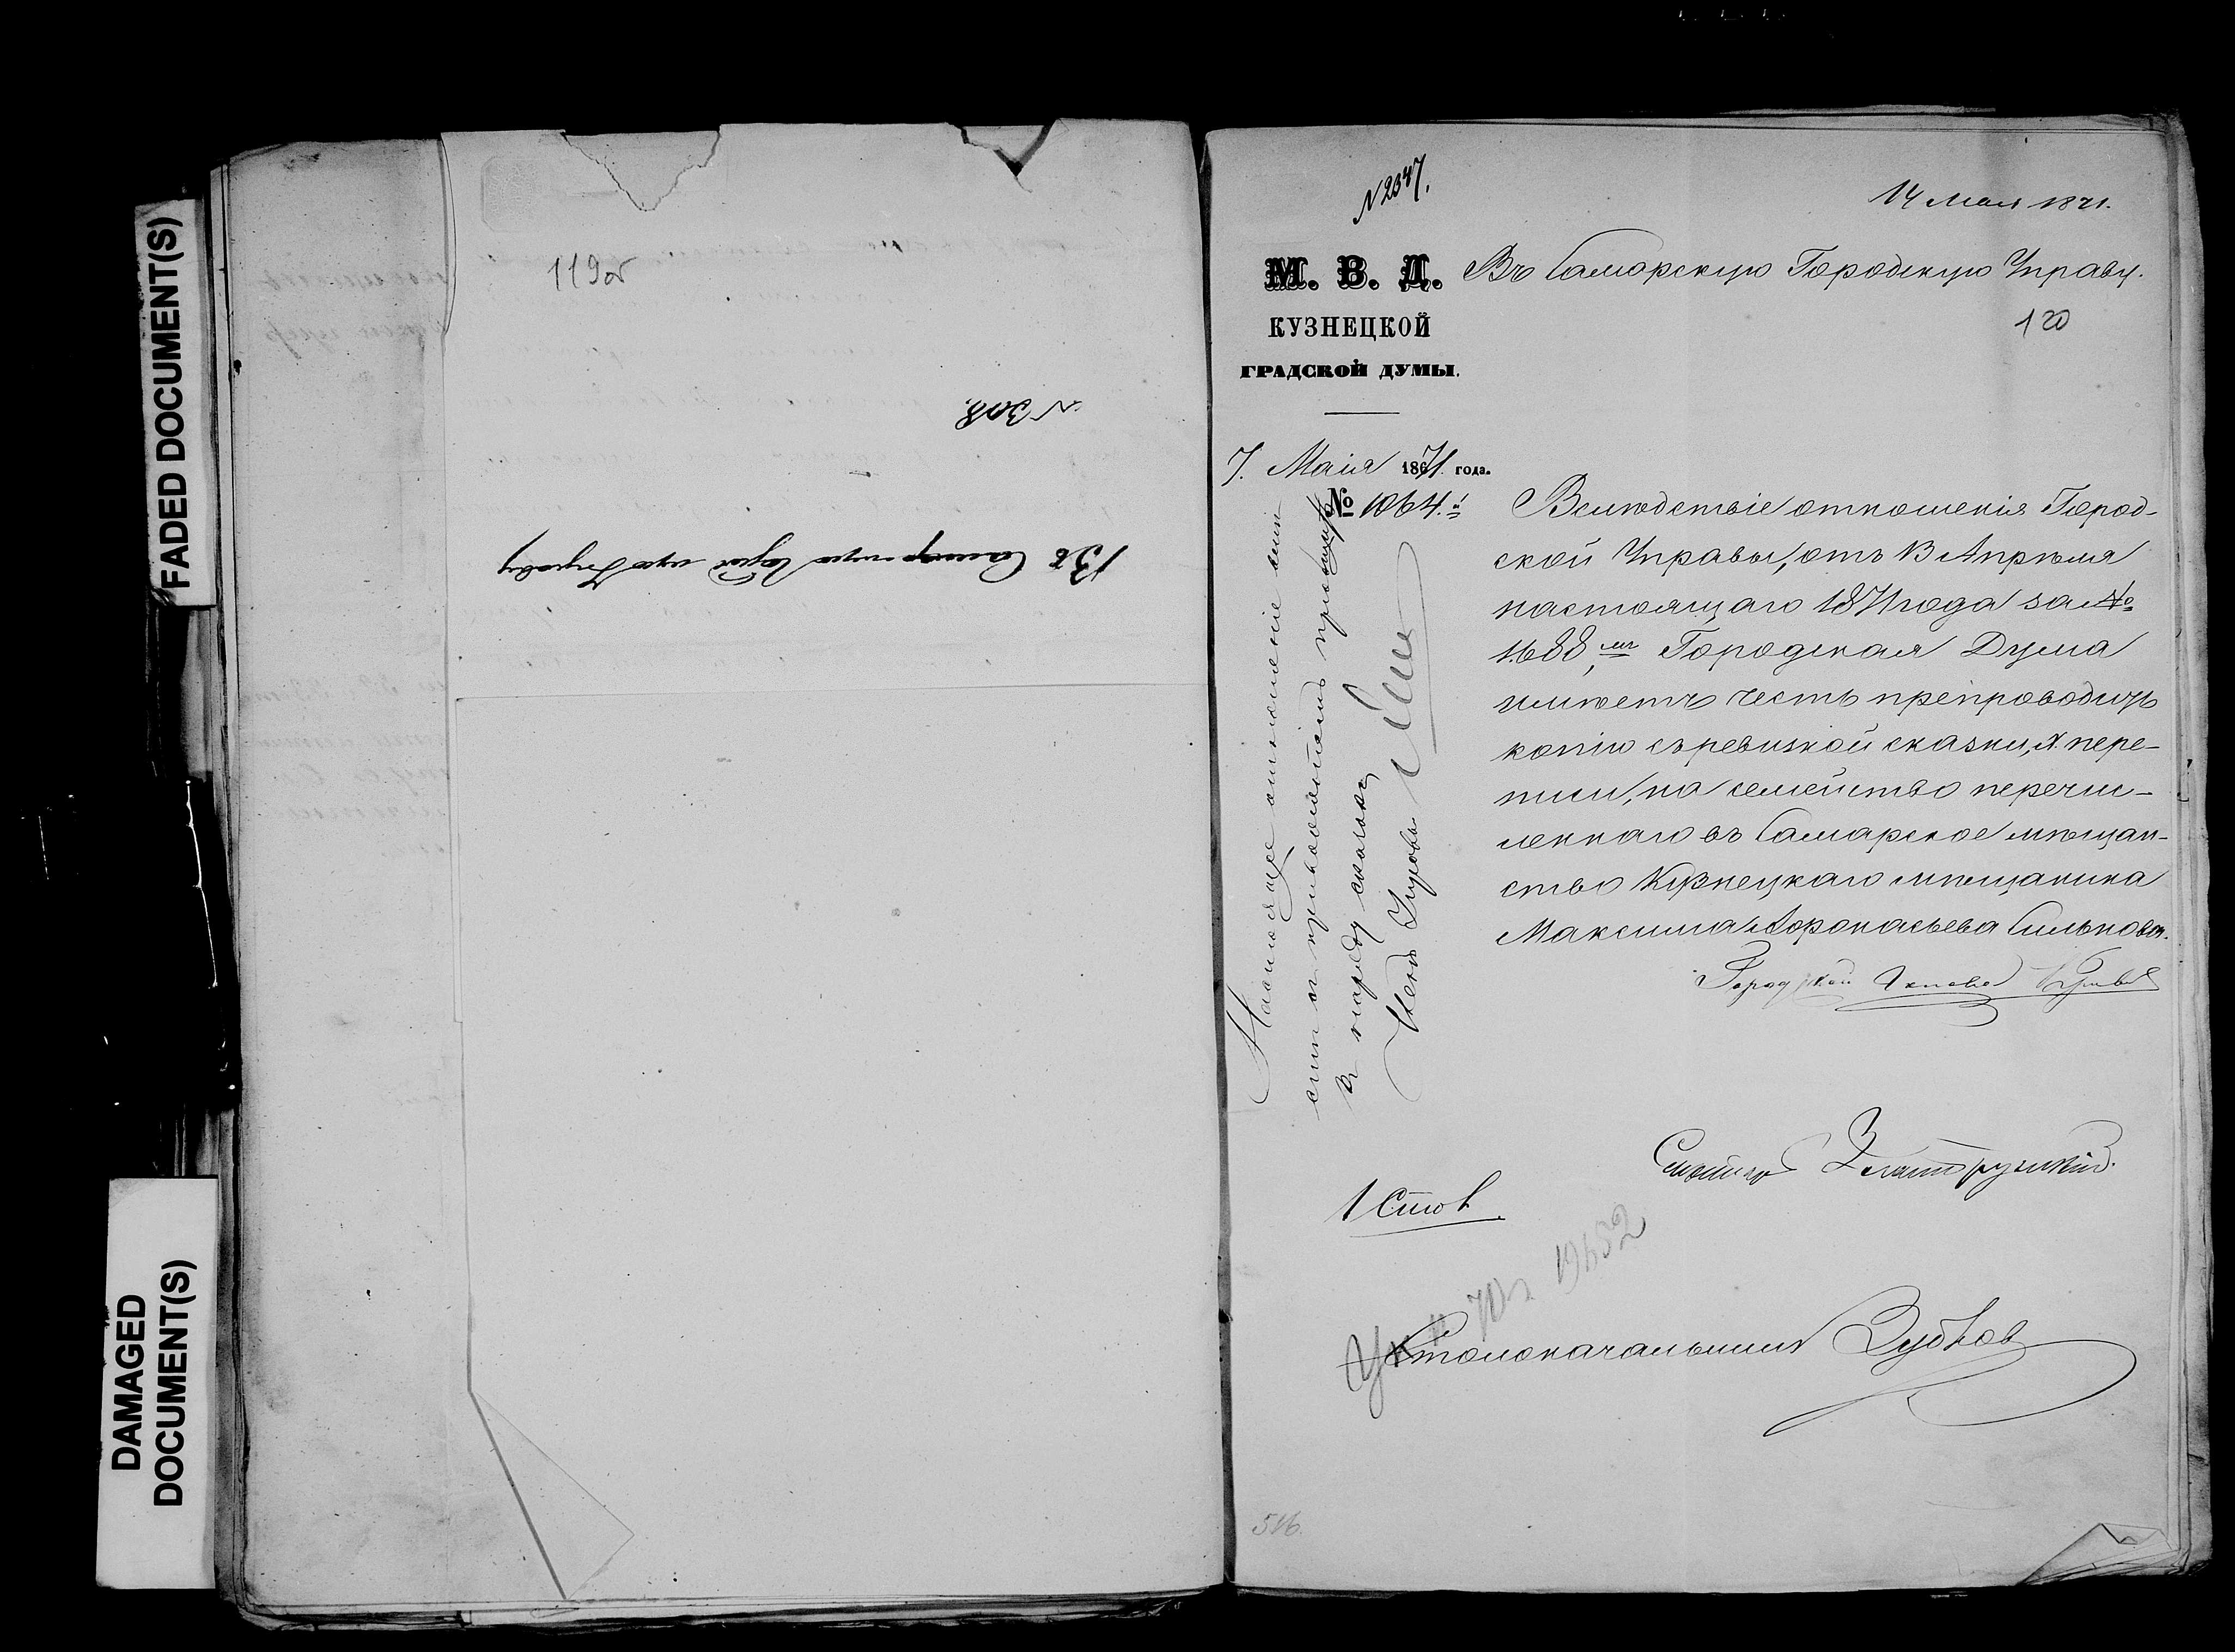 FADED DOCUMENT(S)
DAMAGED
DOCUMENT(S)
119об
№ 308.
Въ Самарскую Городскую Управу
№ 2347.
14 Мая 1871.
М. В. Д.
КУЗНЕЦКОЙ
ГРАДСКОЙ ДУМЫ.
7. Маія 1871. года.
№ 1064.
Въ Самарскую Городскую Управу.
120
Вслѣдствіе отношенія Город-
ской Управы, отъ 13 Апрѣля
настоящаго 1871 года за №
1688, мъ Городская Дума
имѣетъ честь препроводить
копію съ ревизкой сказки, X. пере-
писи, на семейство перечис-
леннаго въ Самарское мѣщан-
ство Кузнецкаго мѣщанина
Максима Афонасьева Силькова.
Городской Голова
Настоящее отношеніе
къ наряду
Членъ Управы
Златорунскій.
Столоначальникъ Зубков
516.